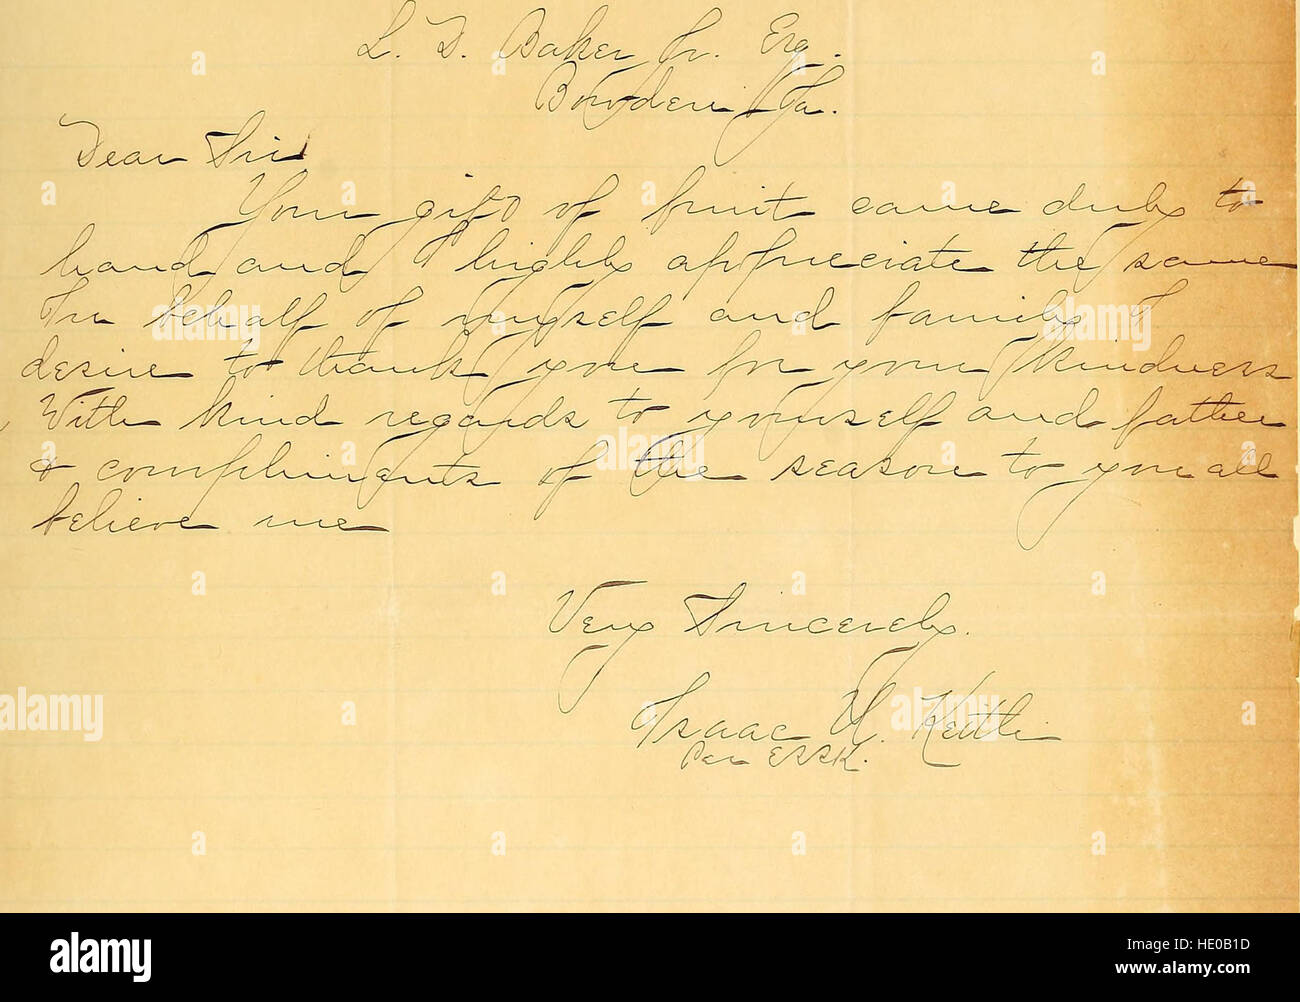 L. D. Baker Jr. Esq.
Bowden Ja.
Dear Sir
Your gift of fruit came duly to
hand and I highly appreciate the same
In behalf of myself and family I
desire to thank you for your kindness
With kind regards to yourself and father
& compliments of the season to you all
believe me
Very Sincerely.
Isaac H. Keith
Per ESSK.
a alamy stock photo
HE0B1D
www.alamy.com